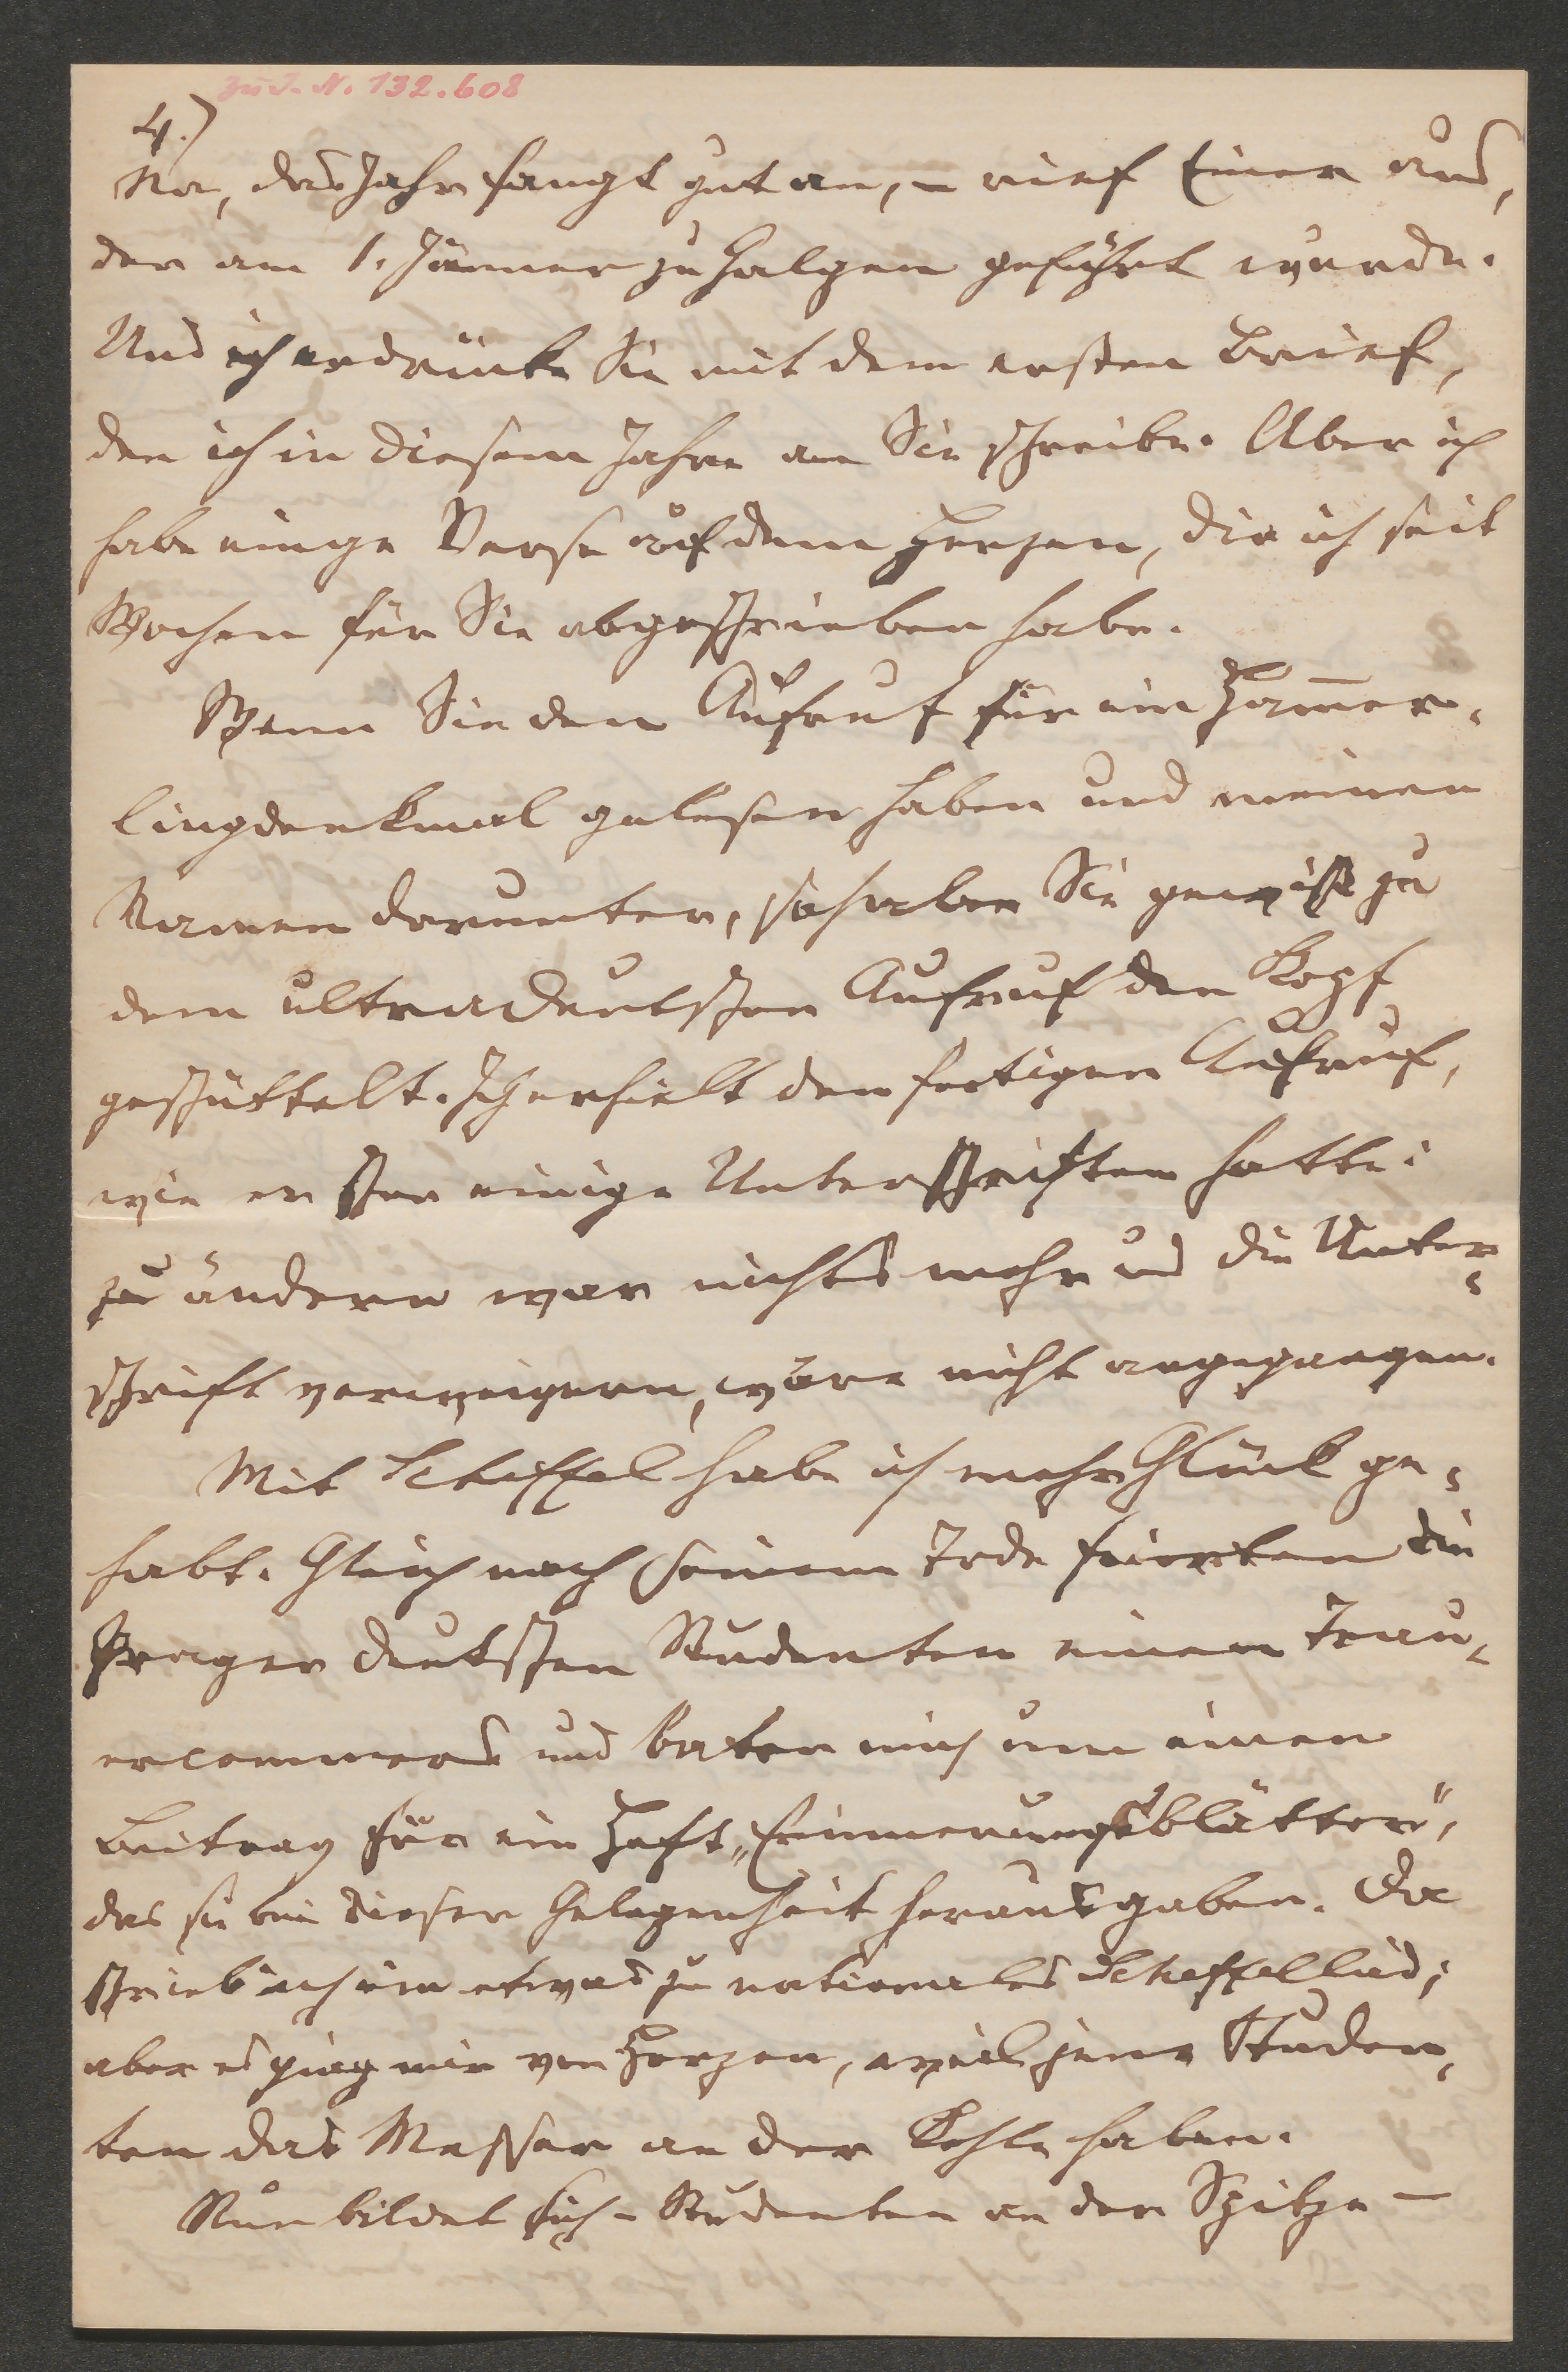 zu I. N. 132.608
4.)
Na, das Jahr fangt gut an, – rief Einer aus,
der am 1. Jänner zu Galgen geführt wurde.
Und ich erdrücke Sie mit dem ersten Brief,
den ich in diesem Jahre an Sie schreibe. Aber ich
habe einige Verse auf dem Herzen, die ich seit
Wochen für Sie abgeschrieben habe.
Wenn Sie den Aufruf für ein Ham̅er-
lingdenkmal gelesen haben und meinen
Namen darunter, so haben Sie gewiß zu
dem ultradeutschen Aufruf den Kopf
geschüttelt. Ich erhielt den fertigen Aufruf,
wie er schon einige Unterschriften hatte:
zu ändern war nichts mehr und die Unter-
schrift verweigern, wäre nicht angegangen.
Mit Scheffel habe ich mehr Glück ge-
habt. Gleich nach seinem Tode feierten die
Prager deutschen Studenten einen Trau-
ercommers und baten mich um einen
Beitrag für ein Heft „Erinnerungsblätter",
das sie bei dieser Gelegenheit herausgaben. Da
schrieb ich ein etwas zu nationales Scheffellied;
aber es ging mir von Herzen, weil jene Studen-
ten das Messer an der Kehle haben.
Nun bildet sich – Studenten an der Spitze –